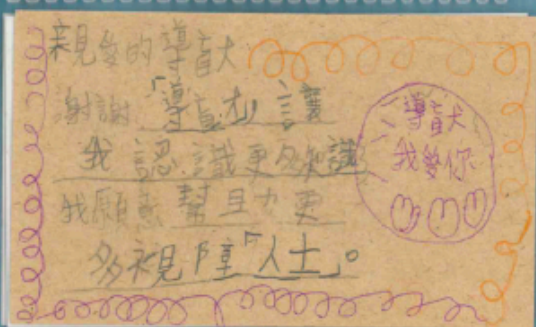 親愛的導盲犬
謝謝「導盲犬」讓
我認識更多知識
我願意幫助更
多視障「人士」。
導盲犬
我愛你